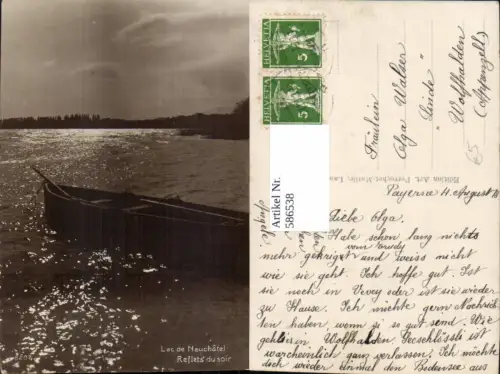 Lac de Neuchâtel
Reflets du soir
HELVETIA
5
HELVETIA
5
Artikel Nr.
586538
Fräulein
Olga Walser
"Linde"
Wolfhalden
(Appenzell)
65
Edition Art. Perrochet-Matile, Lau
Payerne 4. August
Liebe Olga.
Habe schon lang nichts
vom Trudy
mehr gekriegt und weiss nicht
wie sie geht. Ich hoffe gut. Ist
sie noch in Vevey oder ist sie wieder
zu Hause. Ich möchte gern Nachrich-
ten haben, wenn ji so gut send. Wie
geht's in Wolfhalden Seeschlössli ist
warscheinlich ganz verlassen. Ich möchte
dich wieder einmal den Bodensee aus